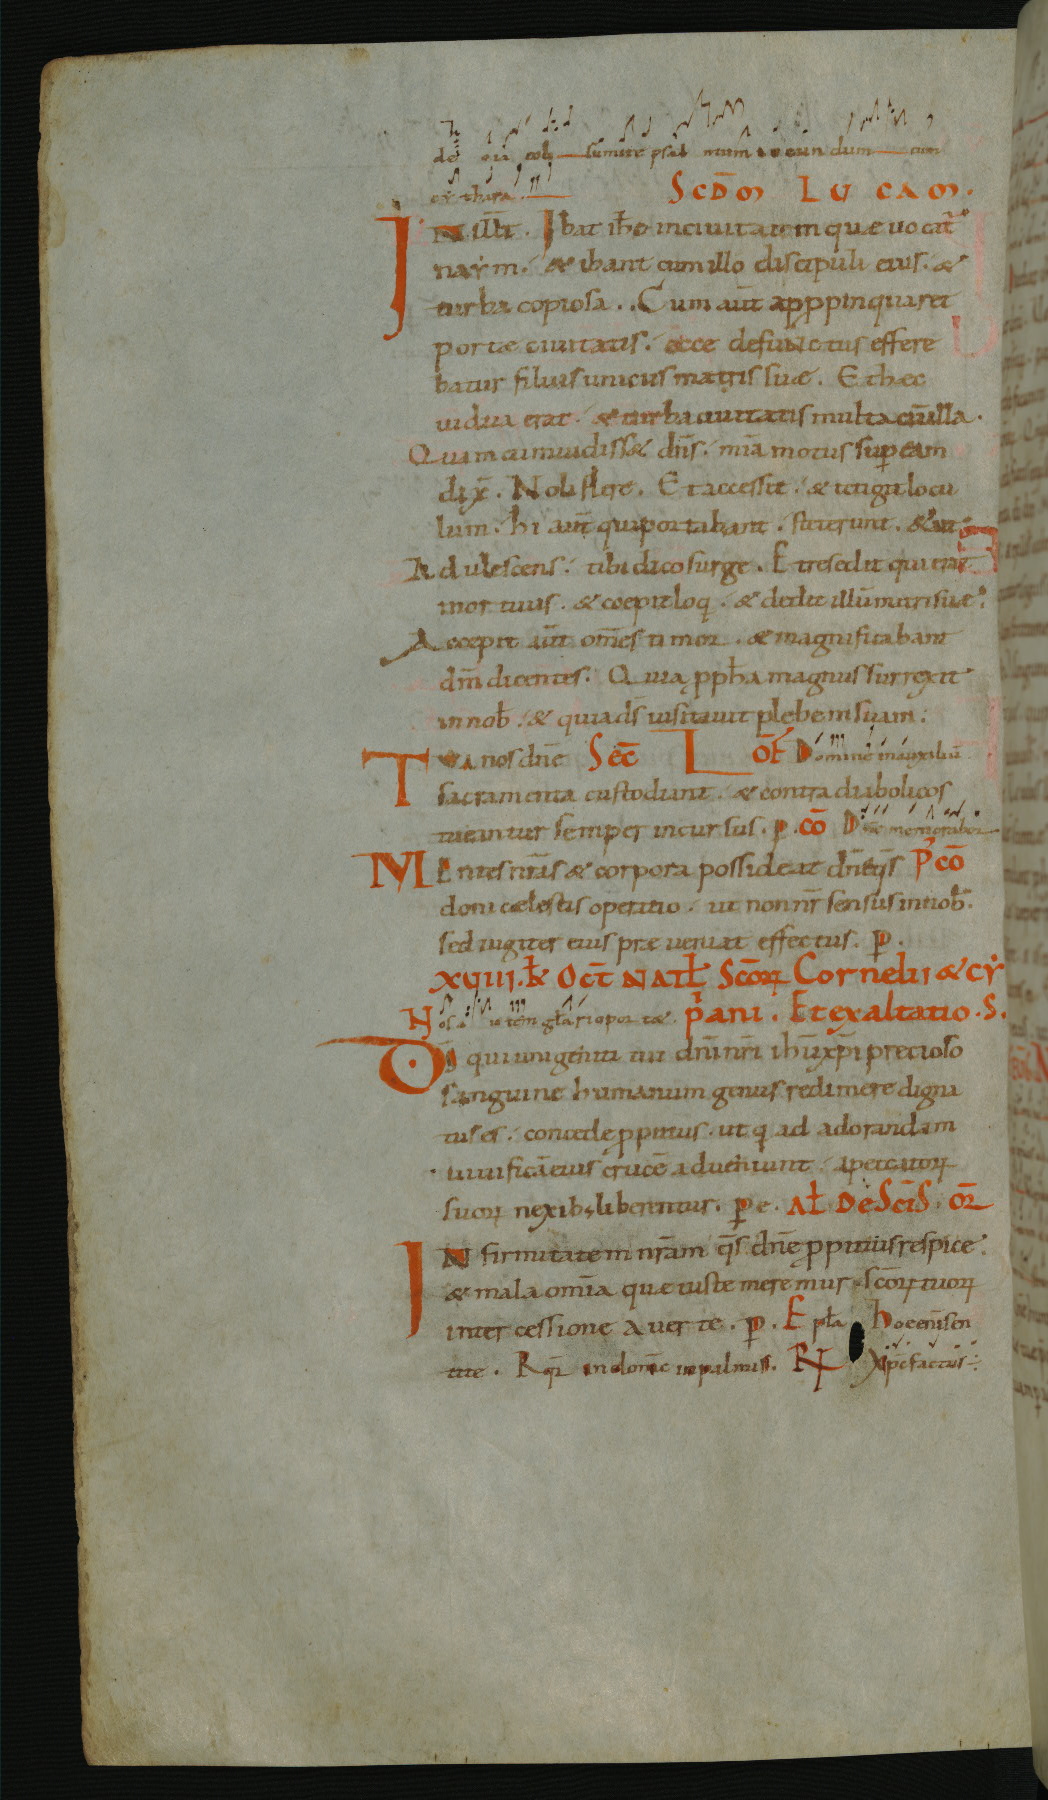 de o ia cob sumite psal mum iocun dum cum
cythara. SCDM LUCAM.
IN illt. Ibat ihs in civitatem quæ vocat̄
naẏm. & ibant cum illo discipuli eius. &
turba copiosa. Cum aut̄ appropinquaret
portæ civitatis. ecce defunctus effere
batur filius unicus matris suæ. Et hæc
vidua erat. & turba civitatis multa cū illa.
Quam cum vidiss& dn̄s. mīa motus sup eam
dix̄. Noli flere. Et accessit. & tetigit locu
lum. hi aut̄ qui portabant. steterunt. & ait
Adulescens. tibi dico surge. Et resedit qui erat
mortuus. & coepit loq. & dedit illū matri suæ.
Accepit aūt om̄es timor. & magnificabant
dm̄ dicentes. Quia ppha magnus surrexit
in nob. & quia d̄s visitavit plebem suam.
TUA nos dn̄e Sec̄ L OF̄ Domine in auxiliū
sacramenta custodiant. & contra diabolicos
tueantur semper incursus. p. cō Dn̄e memorabor
MEntes nrās & corpora possideat dn̄e q̄s P cō
doni cælestis operatio. ut non nr̄ sensus in nob.
sed iugiter eius præveniat effectus. p.
XVIII. kł OCT̄ NATł SCŌRꝝ Cornelii & CẎ
Nos au tem gła ri oportæ. priani. Et exaltatio. S.
DS qui unigeniti tui dn̄i nr̄i ihu xpi precioso
sanguine humanum genus redimere digna
tus es. concede propitius. ut q ad adorandam
vivificā eius crucē adveniunt. a peccatorꝝ
suorꝝ nexib; liberentur. p e. Ał De Scīs. or̄
INfirmitatem nrām q̄s dn̄e propitius respice.
& mala om̄ia quæ iuste meremur. scōrꝝ tuorꝝ
intercessione averte. p. Epła Hoc enī sen
tite. Rqr̄ in domc̄ in palmis. R Xp̄c factus